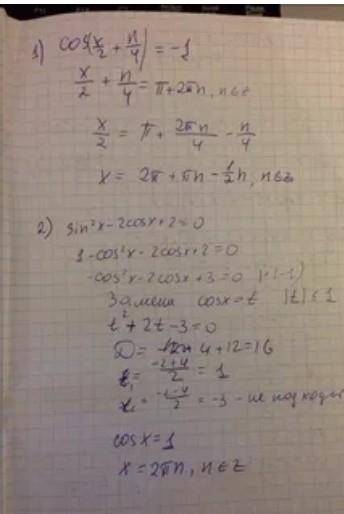 1) cos(x/2 + п/4) = -1
x/2 + п/4 = π + 2πn, n∈z
x/2 = π + 2πn/4 - п/4
x = 2π + πn - 1/2 п, n∈z
2) sin²x - 2cosx + 2 = 0
1 - cos²x - 2cosx + 2 = 0
-cos²x - 2cosx + 3 = 0 |·(-1)
Замена cosx = t |t| ≤ 1
t² + 2t - 3 = 0
D = 4 + 12 = 16
t₁ = (-2+4)/2 = 1
t₂ = (-2-4)/2 = -3 - не подходит
cosx = 1
x = 2πn, n∈z